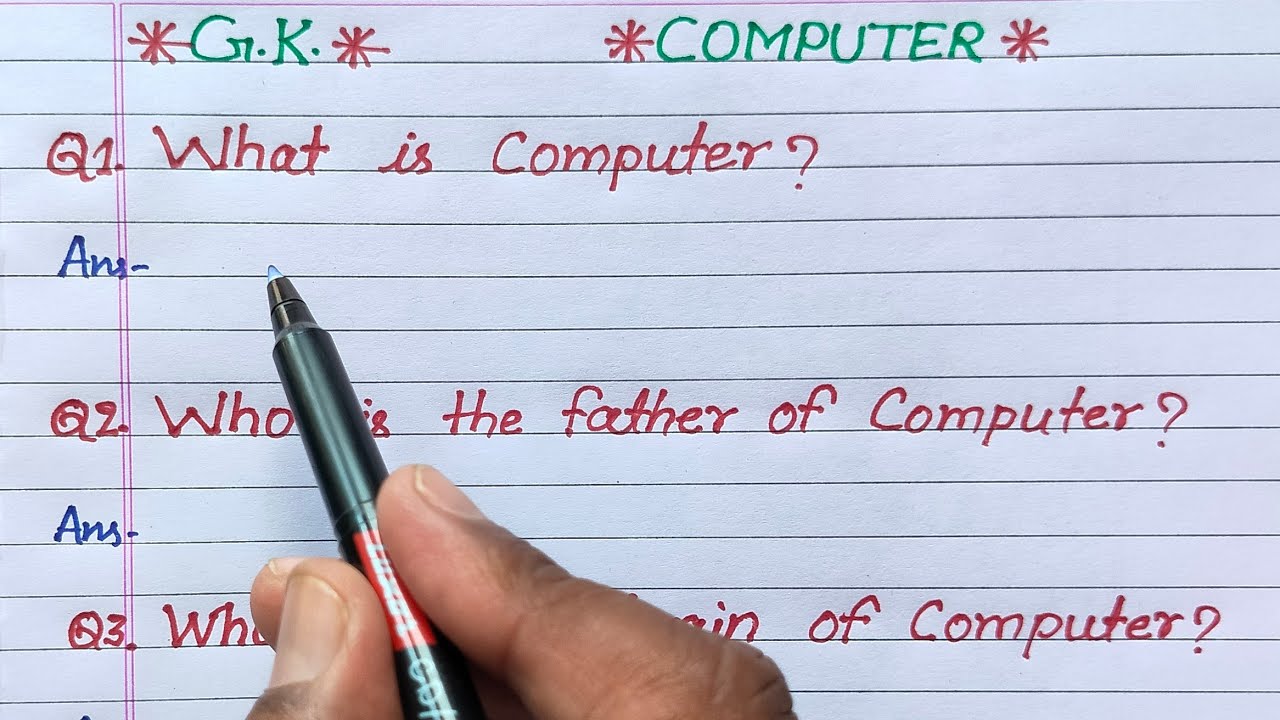 *G.K.* *COMPUTER*
Q1. What is Computer?
Ans-
Q2. Who is the father of Computer?
Ans-
Q3. of Computer?